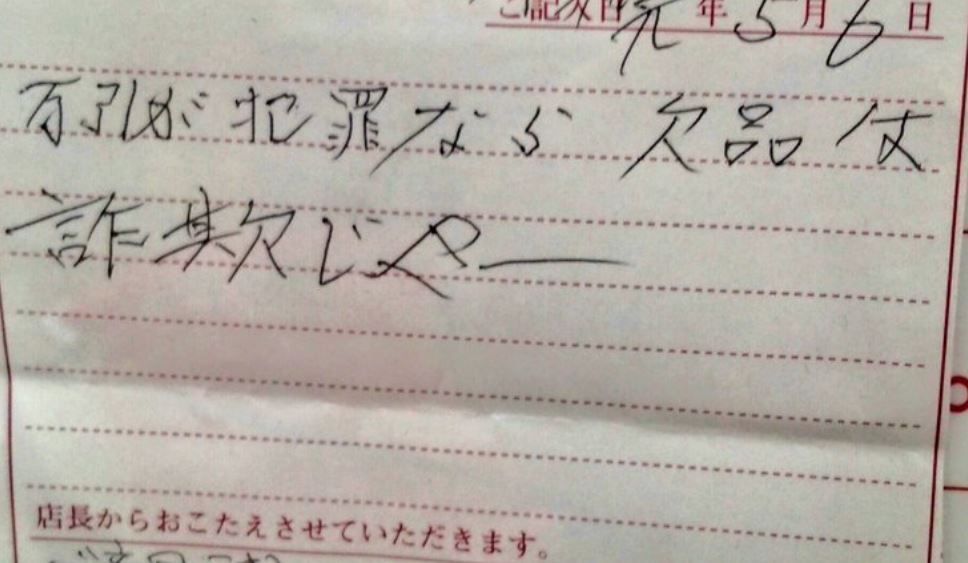 ご記入日 元 年 5 月 6 日
万引が犯罪なら 欠品は
詐欺じゃー
店長からおこたえさせていただきます。